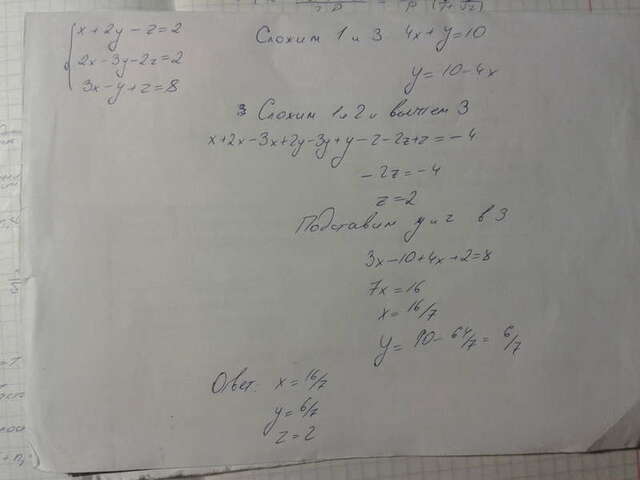 x+2y-z=2
2x-3y-2z=2
3x-y+z=8
Сложим 1 и 3 4x+y=10
y=10-4x
3 Сложим 1 и 2 и вычтем 3
x+2x-3x+2y-3y+y-z-2z+z=-4
-2z=-4
z=2
Подставим y и z в 3
3x-10+4x+2=8
7x=16
x=16/7
y=10-64/7=6/7
Ответ: x=16/7
y=6/7
z=2